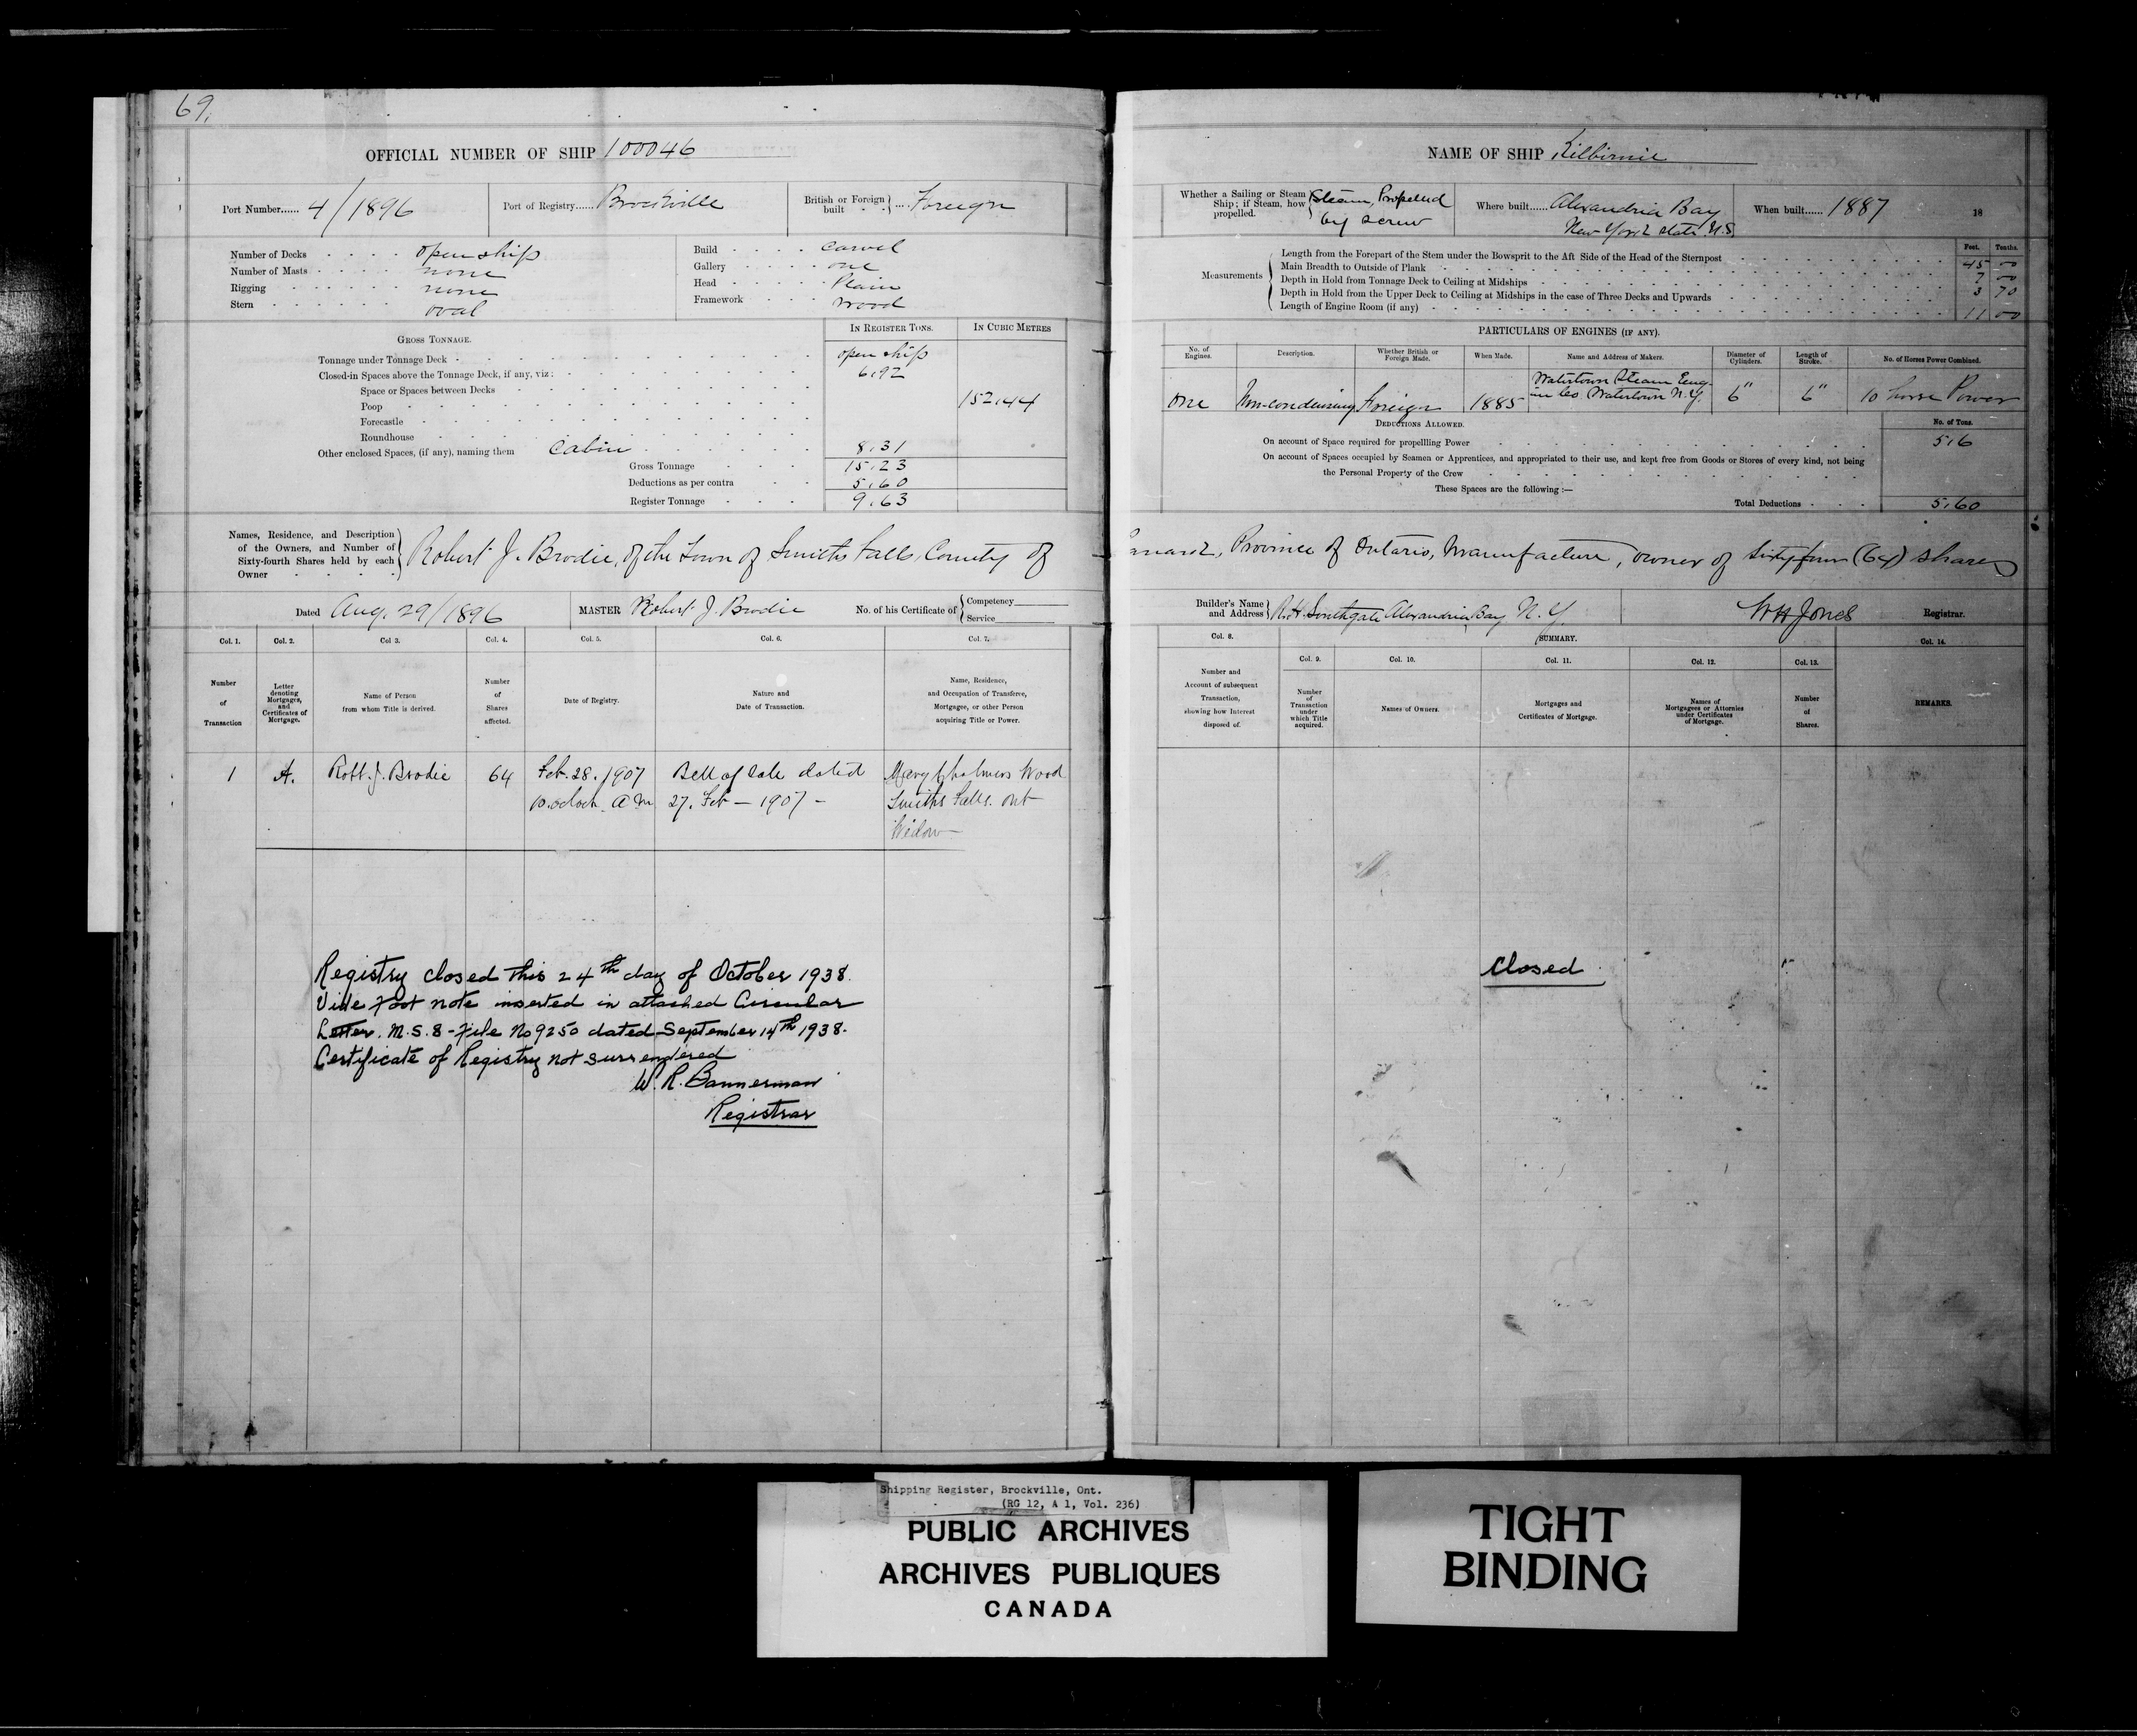 69.
OFFICIAL NUMBER OF SHIP 100046
Port Number...... 4/1896
Port of Registry...... Brockville
British or Foreign built } ... Foreign
Number of Decks open ship
Number of Masts none
Rigging none
Stern oval
Build carvel
Gallery one
Head Plain
Framework wood
GROSS TONNAGE.
IN REGISTER TONS.
IN CUBIC METRES
Tonnage under Tonnage Deck open ship
Closed-in Spaces above the Tonnage Deck, if any, viz: 6.92
Space or Spaces between Decks
Poop 152.44
Forecastle
Roundhouse
Other enclosed Spaces, (if any), naming them Cabin 8.31
Gross Tonnage 15.23
Deductions as per contra 5.60
Register Tonnage 9.63
Names, Residence, and Description
of the Owners, and Number of
Sixty-fourth Shares held by each
Owner
Robert J. Brodie, of the Town of Smiths Falls, County of
Dated Aug. 29/1896
MASTER Robert J. Brodie
No. of his Certificate of { Competency
Service
Col. 1. Col. 2. Col 3. Col. 4. Col. 5. Col. 6. Col. 7.
Number of Transaction
Letter denoting Mortgages, and Certificates of Mortgage.
Name of Person from whom Title is derived.
Number of Shares affected.
Date of Registry.
Nature and Date of Transaction.
Name, Residence, and Occupation of Transferee, Mortgagee, or other Person acquiring Title or Power.
1 A. Robt. J. Brodie 64 Feb. 28. 1907 Bill of Sale dated Mary Chalmers Wood
10. oclock. A M 27. Feb — 1907 — Smiths Falls. Ont
Widow
Registry closed this 24th day of October 1938.
Vide foot note inserted in attached Circular
Letter. M.S. 8 - File No 9250 dated September 14th 1938.
Certificate of Registry not surrendered
W. R. Bannerman
Registrar
NAME OF SHIP Kilbirnie
Whether a Sailing or Steam Ship; if Steam, how propelled. } Steam, Propelled
by screw
Where built...... Alexandria Bay
New York State U.S.
When built...... 1887
18
Feet. Tenths.
Measurements
Length from the Forepart of the Stem under the Bowsprit to the Aft Side of the Head of the Sternpost 45 00
Main Breadth to Outside of Plank 7 00
Depth in Hold from Tonnage Deck to Ceiling at Midships 3 70
Depth in Hold from the Upper Deck to Ceiling at Midships in the case of Three Decks and Upwards
Length of Engine Room (if any) 11 00
PARTICULARS OF ENGINES (IF ANY).
No. of Engines.
Description.
Whether British or Foreign Made.
When Made.
Name and Address of Makers.
Diameter of Cylinders.
Length of Stroke.
No. of Horses Power Combined.
One Non-condensing Foreign 1885 Watertown Steam Eng-
ine Co. Watertown N.Y. 6" 6" 10 horse Power
DEDUCTIONS ALLOWED.
No. of Tons.
On account of Space required for propellling Power 5.6
On account of Spaces occupied by Seamen or Apprentices, and appropriated to their use, and kept free from Goods or Stores of every kind, not being
the Personal Property of the Crew
These Spaces are the following :—
Total Deductions 5.60
Province of Ontario, Manufacture, owner of Sixty four (64) shares
Builder's Name and Address } R. H. Southgate Alexandria Bay N. Y.
W H Jones Registrar.
Col. 8. SUMMARY. Col. 14.
Col. 9. Col. 10. Col. 11. Col. 12. Col. 13.
Number and Account of subsequent Transaction, showing how Interest disposed of.
Number of Transaction under which Title acquired.
Names of Owners.
Mortgages and Certificates of Mortgage.
Names of Mortgagees or Attornies under Certificates of Mortgage.
Number of Shares.
REMARKS.
Closed
Shipping Register, Brockville, Ont.
(RG 12, A 1, Vol. 236)
PUBLIC ARCHIVES
ARCHIVES PUBLIQUES
CANADA
TIGHT
BINDING